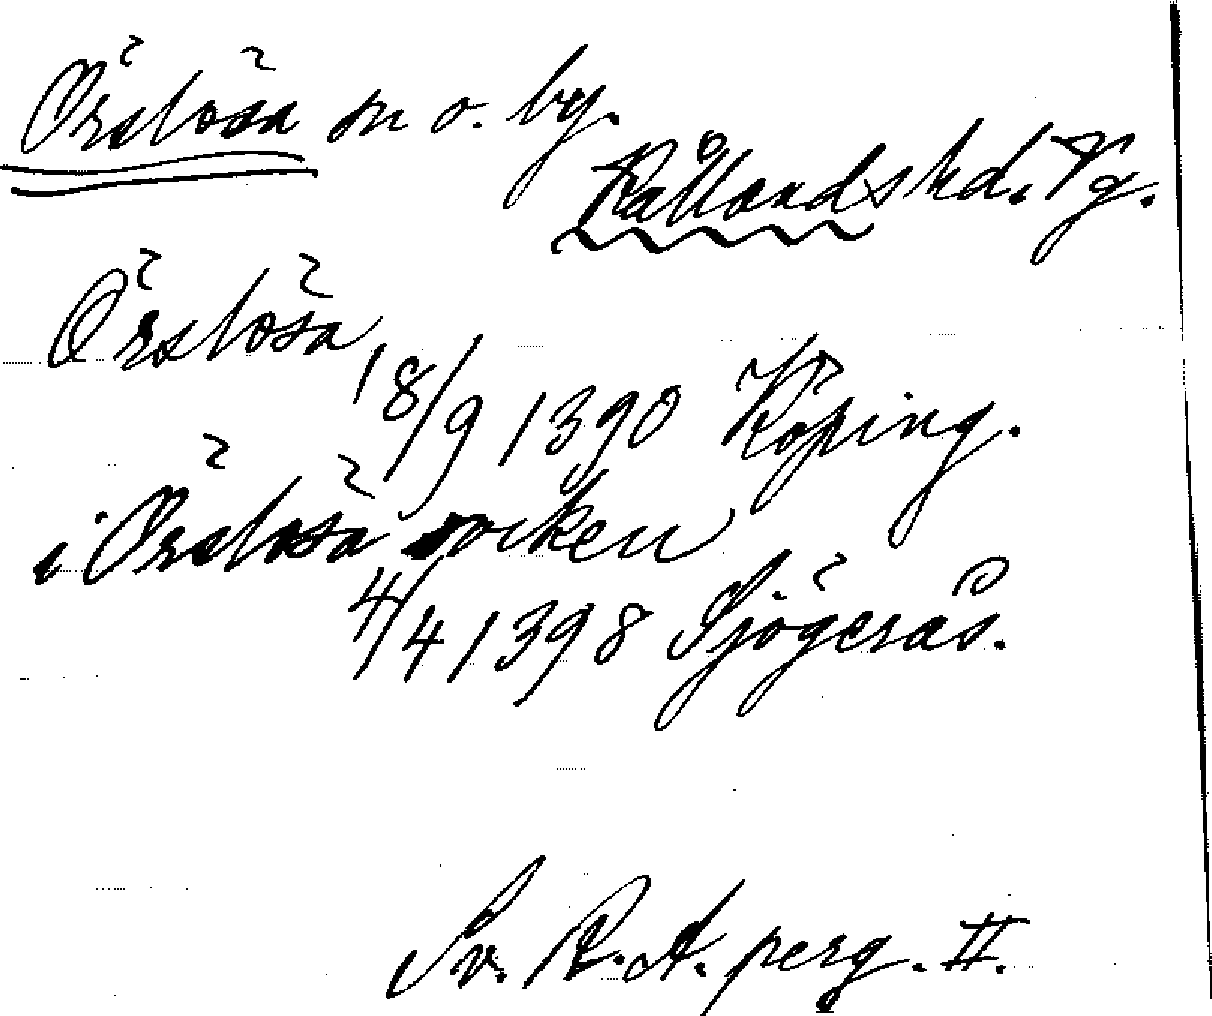 Örslösa sn o. by.
Kållands hd. Vg.
Örslösa
18/9 1390 Köping.
i Örslösa socken
4/4 1398 Sjögerås.
Sv. R. A. perg. II.